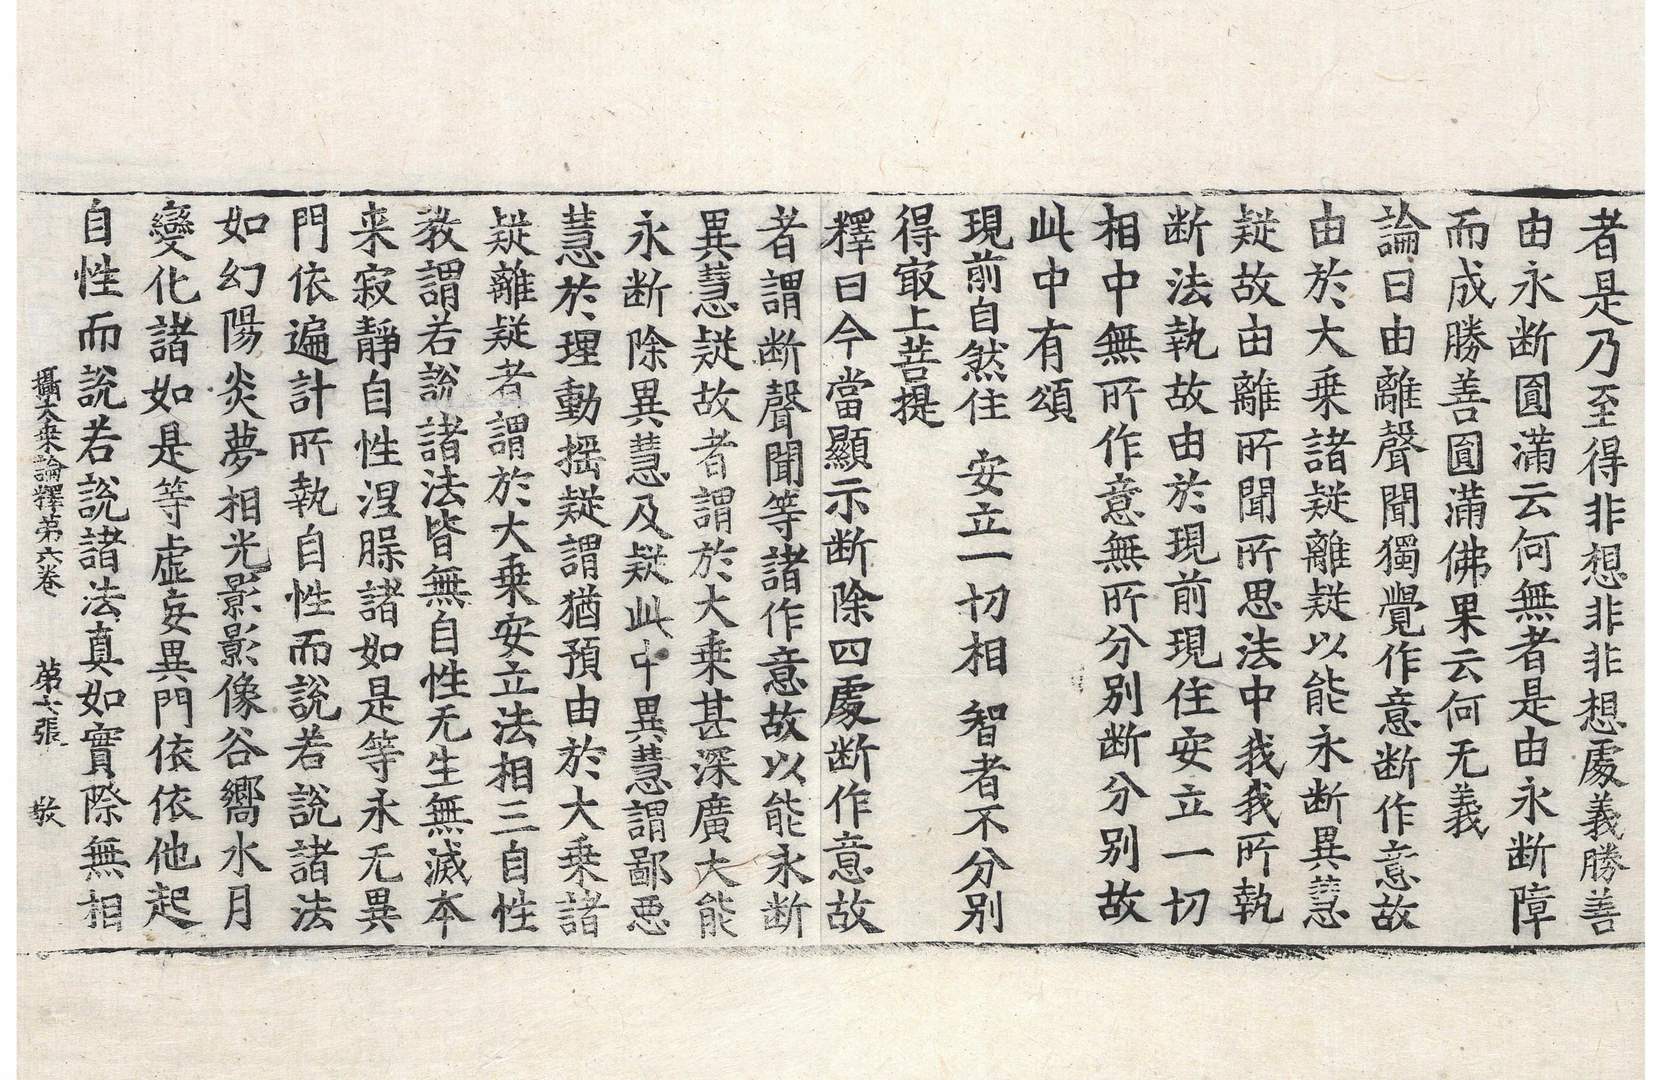 者是乃至得非想非非想處義勝善
由永断圓滿云何無者是由永断障
而成勝善圓滿佛果云何无義
論曰由離聲聞獨覺作意断作意故
由於大乗諸疑離疑以能永断異慧
疑故由離所聞所思法中我我所執
断法執故由於現前現住安立一切
相中無所作意無所分别断分别故
此中有頌
現前自然住　安立一切相　智者不分别
得㝡上菩提
釋曰今當顯示断除四處断作意故
者謂断聲聞等諸作意故以能永断
異慧疑故者謂於大乗甚深廣大能
永断除異慧及疑此中異慧謂鄙惡
慧於理動摇疑謂猶預由於大乗諸
疑離疑者謂於大乗安立法相三自性
教謂若說諸法皆無自性无生無滅本
来寂靜自性涅槃諸如是等永无異
門依遍計所執自性而說若說諸法
如幻陽炎夢相光影影像谷嚮水月
變化諸如是等虚妄異門依依他起
自性而說若說諸法真如實際無相
攝大乗論釋第六卷　第七張　敬